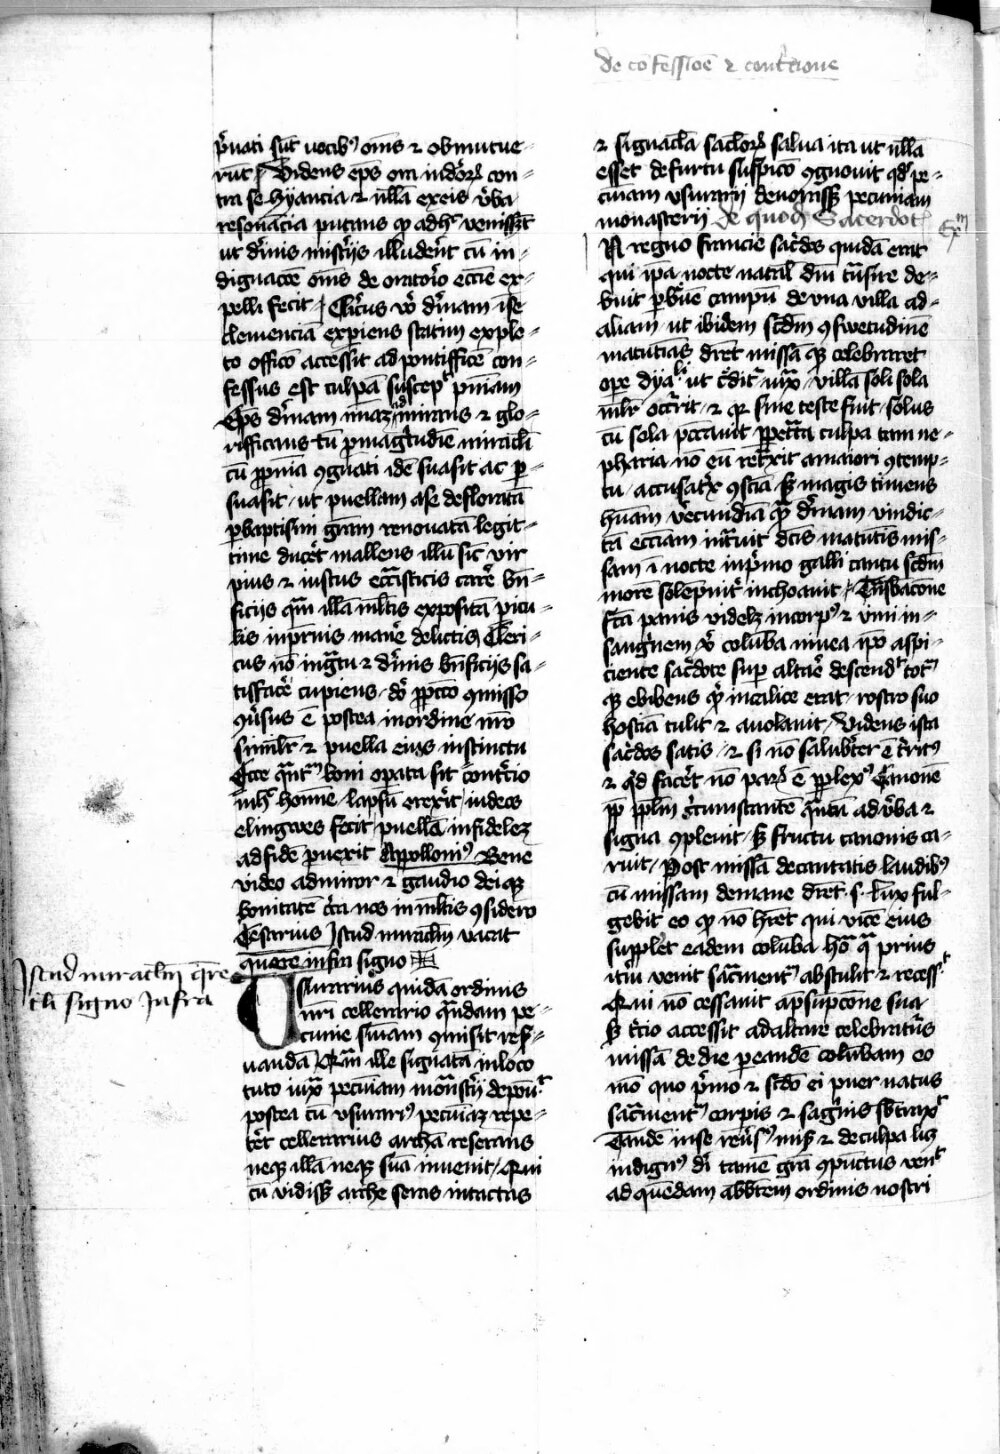 de co fessioe ⁊ cont̃cione
p̾uati sūt uocib⁹ om̄s ⁊ obmutue-
rūt Videns ep̄s ora iudeoꝝ con-
tra se hyancia ⁊ nullā ex eis v̾ba
resonācia putans ꝙ ad hͦ venissēt
ut diuīs mist̾ijs illudeñt cū in-
dignacōe om̄s de orator̾o ecc̄ie ex-
pelli fecit Cleric̾us v̾o diu̾nam ī se
clemenciā exꝑiens statim exple-
to officō accessit ad pontifficē con-
fessus est culpā suscepᵗ pn̄iam
Ep̄s diu̾nam īmaꝫ mirans ⁊ glo-
rifficans tū ꝓ mag̾tudīe miracl̄i
cū ꝓpn̄ia ꝯguati idē suasit ac ꝑ-
suasit ut puellam a se defloratā
ꝑ baptismi grām renouatā legit-
time duceͬt mallens illū sic̄ vir
pius ⁊ iustus ecc̄iasticis carēͤ bn̄-
ficijs qͣm illā ml̄tis expositā ꝑicu-
lis in pͥmis manēͤ delictis Cleri-
cus nō ingͣtu ⁊ diu̾nis bn̄ficijs sa-
tiffacēͤ cupiens
ꝯu̾sus ē postea in ordine nr̄o
simil̄r ⁊ puella eius instinctu
Ecce qͣntū boni opata sit contͥcio
in hͦ homīe lapsū erexit iudeos
elingwes fecit puellā infidelē
ad fidē ꝓuexit Appolloni⁹ Bene
video admiror ⁊ gaudio dei qꝫ
bonitatē cͥca nos in ml̄tis ꝯsidero
Cesarius Istud miracl̄m vacat
quere infra signo
Istud miracl̄m qͥre
tali signo Infra
Usurarius quidā ordinis
nr̄i cellerario qͣndam pe-
cunie sūmam ꝯmisit reser̾-
uandā Qͣm ille signatā in loco
tuto iuxͣ pecuniam monast̾ij depouͭ
postea cū vsurari⁹ pecuniaꝫ repe-
tēt cellerarius archā reserans
neqꝫ illā neqꝫ suā inuenit Qui
cū vidisꝫ arche seras intactas
⁊ signacl̄a saccl̄oꝝ salua ita ut nulla
esset de furtu suspico ꝯgnouit qd̾ pe-
cuniam vsurarij deuorassꝫ pecuniam
monasterij de quodā Sacerdot
Exᵐ
IN regno francie sacd̾os quidā erat
qui ip̄a nocte natal̄ dn̄i tn̄sire de-
buit ꝑ bͬuē campū de vna villa ad
aliam ut ibidem scd̄m ꝯswetudinē
matutinas diceͬt missā qꝫ celebraret
oꝑe dyaͣli ut cͬditͬ iuxͣ villā soli sola
ml̾r occͬrit ⁊ qꝛ sine teste fuit solus
cū sola peccauit ꝑpet̾ta culpa tam ne-
pharia nō eū ret̾xit a maiori ꝯtemp-
tu accusatͥx ꝯscīa sꝫ magis timens
hūam v̾ecundiā qͣꝫ diu̾nam vindic-
tā ecc̄iam intͣuit dictis matutīs mis-
sam ī nocte in pͥmo galli cantu scd̄m
morē solēpnitͬ inchoauit Tn̄sbacōne
fcā panis videlꝫ in corp⁹ ⁊ vini in
sanguinem v̾o columba niuea īpo aspi-
ciente sacd̾ote suꝑ altāͤ descendͭ totū
qꝫ ebibens qͦ in calice erat rostro suo
hostiā tulit ⁊ auolauit Videns ista
sacd̾os satis ⁊ si nō salubit̾er ē tͬrit⁹
⁊ qͥd faceͬt nō paꝝ ē ꝑplex⁹ Canonē
pp̄ ppl̄m cͥcumstantē qͣntū ad v̾ba ⁊
signa ꝯpleuit sꝫ fructu canonis ca-
ruit Post missā decantatis laudib⁹
cū missam de mane diceͬt s Lux ful-
gebit eo ꝙ nō h̄ret qui vicē eius
supplet̾ eadem columba hoͬ qͣ prius
itm̄ venit sacͣment̄ abstulit ⁊ recessͭ
Qui nō cessauit a p̾supcōne sua
sꝫ tͬcio accessit ad altare celebratuͬs
missā de die ꝑ eandē columbam eo
mō quo pͥmo ⁊ scd̄o ei puer natus
sacͣment̄ corꝑis ⁊ sagͥnis sbͭraxͭ
Tandē in se reu̾s⁹ mis̾ ⁊ de culpa lꝫ
indign⁹ dī tamē grā ꝯpūctus venͭ
ad quendam abbtem ordinis nostri